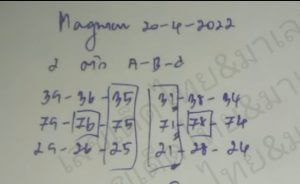 Magnum 20-4-2022
2 ตัว A-B-C
39-36-35 31-38-34
79-76-75 71-78-74
29-26-25 21-28-24